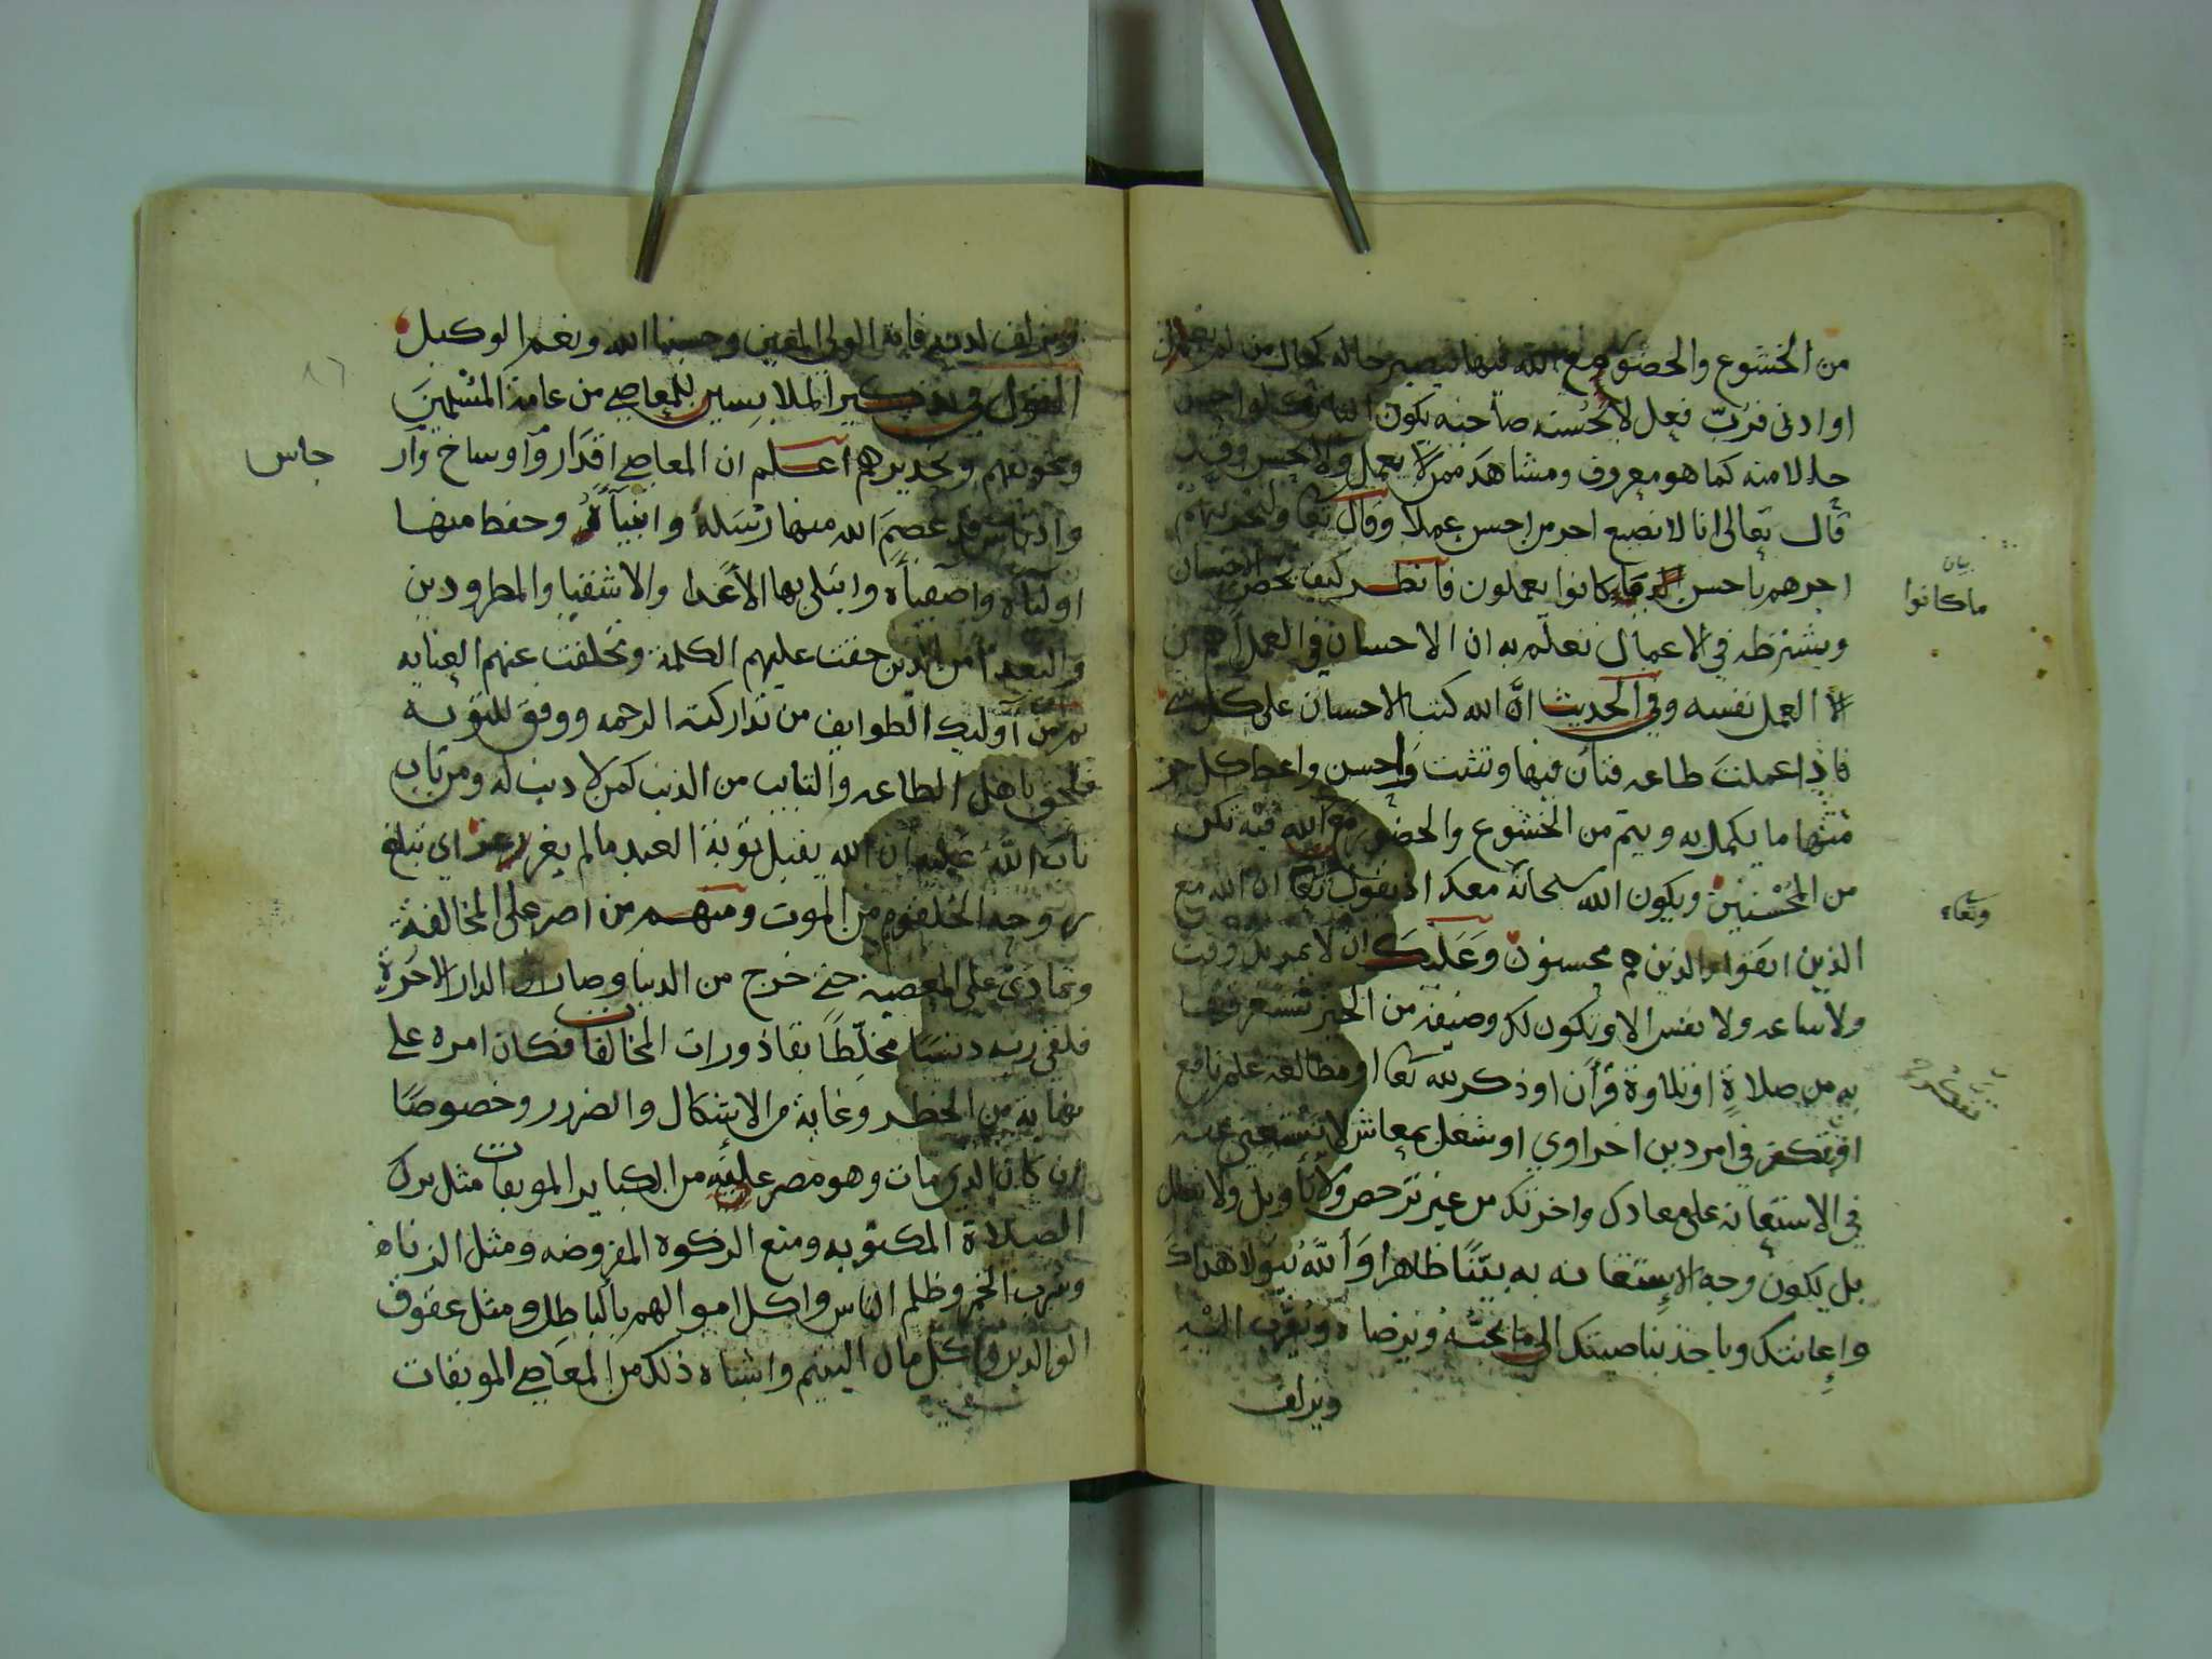 من الخشوع والحضور مع الله فيها فيصير حاله كحال من لم يعمل
او ادنى فرُبّ فعل لا يحُسنه صاحبه يكون
حالا منه كما هو معروف ومشاهَد ممن لا يعمل ولا يحسن وقد
قال تعالى انا لا نضيع اجر من احسن عملا وقال تعا ولنجزينهم
اجرهم باحسن ما كانوا يعملون فانظر كيف يخص الاحسان
بيان
ماكانوا
ويشترطه في الاعمال تعلم به ان الاحسان في العمل اهم من
العمل نفسه وفي الحديث انَّ الله كتب الاحسان على كل شي
فاذا عملتَ طاعه فتأن فيها وتثبت واحسن واعط كل جز
منها ما يكمل به ويتم من الخشوع والحضور مع الله فيه تكن
من المُحْسنين ويكون الله سبحانه معك اذ يقول تعا ان الله مع
وتعا
الذين اتقوا والذين هم محسنون وعَليكَ ان لا يمر بك وقت
ولا ساعه ولا نفس الا وتكون لك وضيفه من الخير تستغرقها
به من صلاةٍ او تلاوة قرآن او ذكر لله تعا او مطالعة علم نافع
او تفكر في امر دين اخراوي او شغل بمعاش لا تستغني عنه
في الاستعانه على معادك واخرتك من غير ترخص ولا تاويل ولا
بل يكون وجه الاستعانه به بيّنًا ظاهرا وَاللّه يتولا هداك
واِعانتك وياخذ بناصيتك الى ما يحبّه ويرضاه ويُقرّب اليه
ويزلف
ويزلف لديه فانه الولي المعين وحسبنا الله ونعم الوكيل
القول في تذكير الملابسين للمعاصي من عامة المسْلمينَ
٨٦
وتخويفهم وتحذيرهم اعلم ان المعاصي اقذَار واوساخ وار
جاس
وادناس قد عصمَ الله منها رسَله وانبيآءهُ وحفظ منها
اوليآه واصفيآءه وابتلى بها الأعَدا والاشقيا والمطرودين
والبعدا من الذين حقت عليهم الكلمة وتخلفت عنهم العنايه
ثم من اوليك الطوايف من تداركته الرحمه ووفق للتوبه
فلحق باهل الطاعه والتايب من الذنب كمن لا ذنب له ومن تاب
تاب اللّهُ عليه ان الله يقبل توبة العبد مالم يغرغر اي تبلغ
روحه الحلقوم من الموت ومنهم من اصر على المخالفة
وتمادى على المعصيه حتى خرج من الدنيا وصار الى الدار الاخرة
فلقي ربه دنسَا مخلّطًا بقاذورات المخالفات فكان امره على
نهاية من الخطر وغاية من الاشكال والضرر وخصوصًا
ان كان الذي مات وهو مصر عليه من الكباير الموبقات مثل ترك
الصلاة المكتوبه ومنع الزكوة المفروضه ومثل الزناه
وشرب الخمر وظلم الناس واكل اموالهم بالباطل ومثل عقوق
الوالدين واكل مال اليتيم واشباه ذلك من المعاصي الموبقات